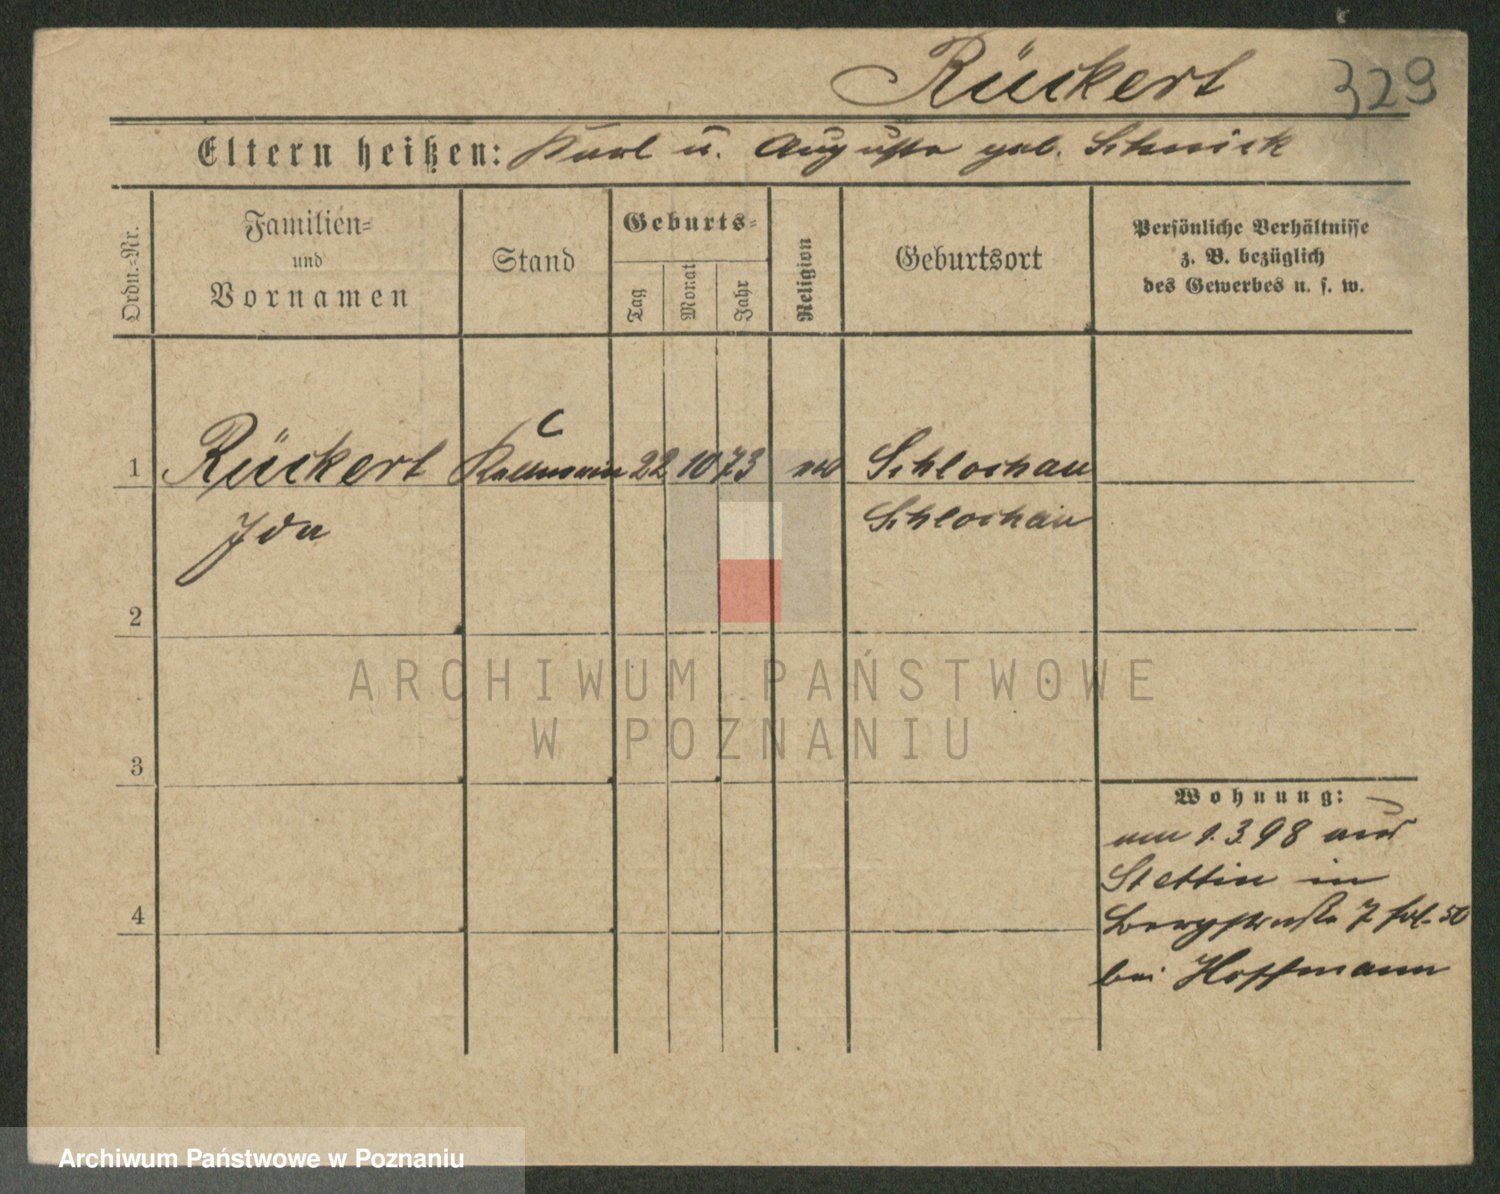 Rückert 329
Eltern heißen: Karl u. Auguste geb.
Ordn.-Nr.
Familien-
und
Vornamen
Stand
Geburts-
Tag
Monat
Jahr
Religion
Geburtsort
Persönliche Verhältnisse
z. B. bezüglich
des Gewerbes u. s. w.
1 Rückert 22 10 73 Schlochau
Ida Schlochau
2
ARCHIWUM PAŃSTWOWE
W POZNANIU
3
Wohnung:
am 1.3.98 aus
Stettin in
4 Bergstraße 7 fol. 50
bei Hoffmann
Archiwum Państwowe w Poznaniu